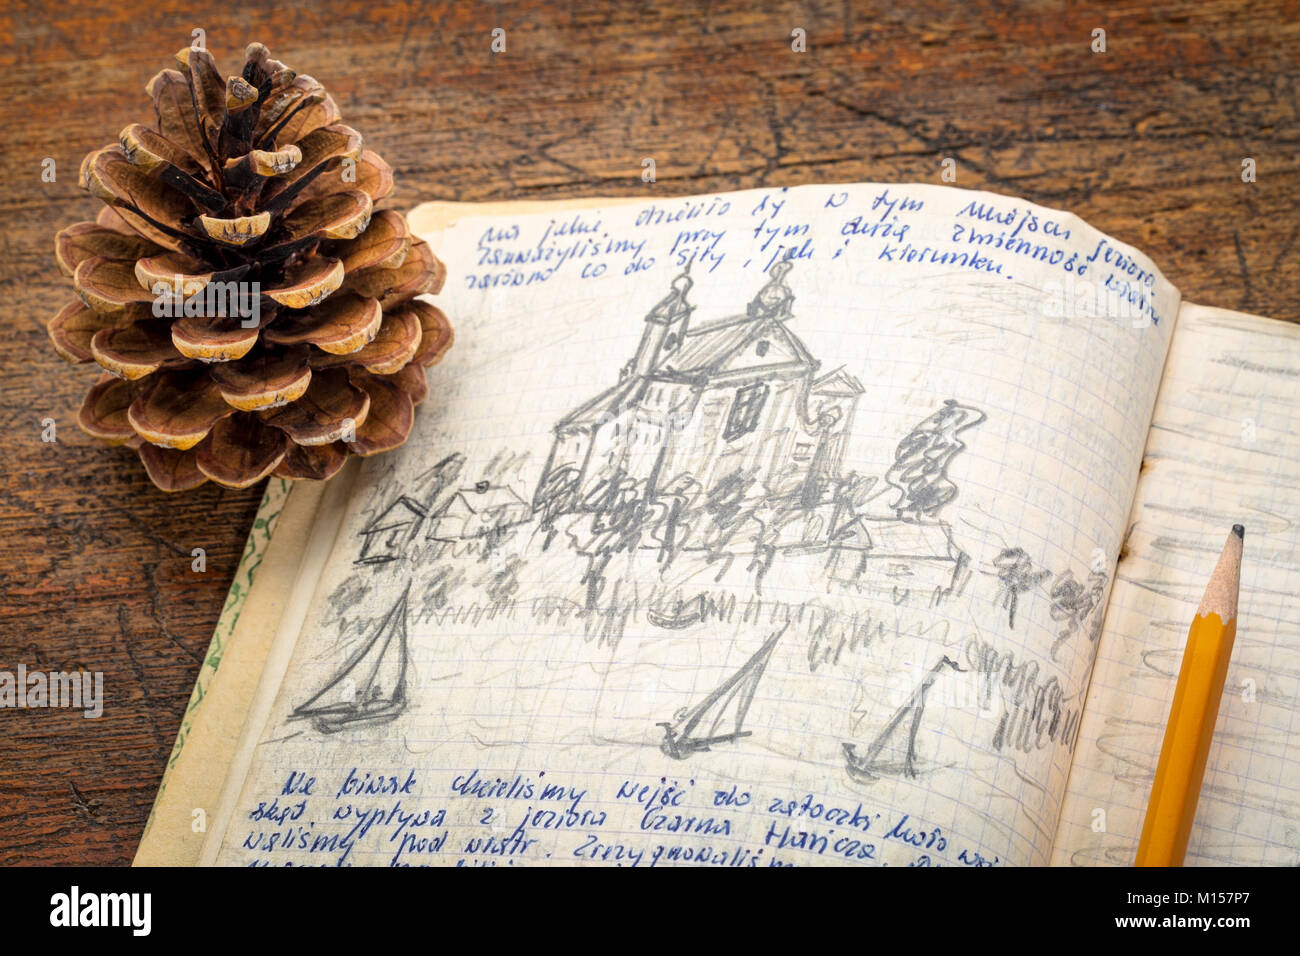 na jakie dzieliło się w tym miejscu jezioro
zauważyliśmy przy tym dużą zmienność wiatru
zarówno co do siły, jak i kierunku.
Na biwak chcieliśmy wejść do zatoczki koło wsi
skąd wypływa z jeziora Czarna Hańcza.
waliśmy pod wiatr. Zrezygnowaliśmy
alamy
alamy stock photo
M157P7
www.alamy.com